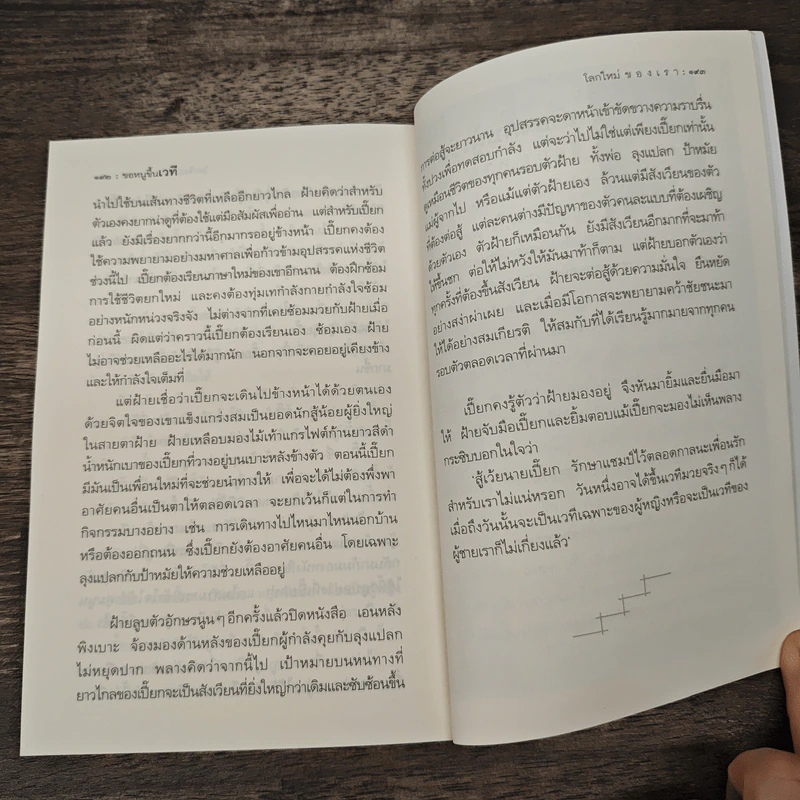 ๑๙๒ : ขอหนูขึ้นเวที
นำไปใช้บนเส้นทางชีวิตที่เหลืออีกยาวไกล ฝ้ายคิดว่าสำหรับ
ตัวเองคงยากน่าดูที่ต้องใช้แต่มือสัมผัสเพื่ออ่าน แต่สำหรับเปี๊ยก
แล้ว ยังมีเรื่องยากกว่านี้อีกมากรออยู่ข้างหน้า เปี๊ยกคงต้อง
ใช้ความพยายามอย่างมหาศาลเพื่อก้าวข้ามอุปสรรคแห่งชีวิต
ช่วงนี้ไป เปี๊ยกต้องเรียนภาษาใหม่ของเขาอีกนาน ต้องฝึกซ้อม
การใช้ชีวิตยกใหม่ และคงต้องทุ่มเทกำลังกายกำลังใจซ้อม
อย่างหนักหน่วงจริงจัง ไม่ต่างจากที่เคยซ้อมมวยกับฝ้ายเมื่อ
ก่อนนี้ ผิดแต่ว่าคราวนี้เปี๊ยกต้องเรียนเอง ซ้อมเอง ฝ้าย
ไม่อาจช่วยเหลืออะไรได้มากนัก นอกจากจะคอยอยู่เคียงข้าง
และให้กำลังใจเต็มที่
แต่ฝ้ายเชื่อว่าเปี๊ยกจะเดินไปข้างหน้าได้ด้วยตนเอง
ด้วยจิตใจของเขาแข็งแกร่งสมเป็นยอดนักสู้น้อยผู้ยิ่งใหญ่
ในสายตาฝ้าย ฝ้ายเหลือบมองไม้เท้าแกรไฟต์ก้านยาวสีดำ
น้ำหนักเบาของเปี๊ยกที่วางอยู่บนเบาะหลังข้างตัว ตอนนี้เปี๊ยก
มีมันเป็นเพื่อนใหม่ที่จะช่วยนำทางให้ เพื่อจะได้ไม่ต้องพึ่งพา
อาศัยคนอื่นเป็นตาให้ตลอดเวลา จะยกเว้นก็แต่ในการทำ
กิจกรรมบางอย่าง เช่น การเดินทางไปไหนมาไหนนอกบ้าน
หรือต้องออกถนน ซึ่งเปี๊ยกยังต้องอาศัยคนอื่น โดยเฉพาะ
ลุงแปลกกับป้าหมัยให้ความช่วยเหลืออยู่
ฝ้ายลูบตัวอักษรนูนๆ อีกครั้งแล้วปิดหนังสือ เอนหลัง
พิงเบาะ จ้องมองด้านหลังของเปี๊ยกผู้กำลังคุยกับลุงแปลก
ไม่หยุดปาก พลางคิดว่าจากนี้ไป เป้าหมายบนหนทางที่
ยาวไกลของเปี๊ยกจะเป็นสังเวียนที่ยิ่งใหญ่กว่าเดิมและซับซ้อนขึ้น
โลกใหม่ ข อ ง เ ร า : ๑๙๓
การต่อสู้จะยาวนาน อุปสรรคจะดาหน้าเข้าขัดขวางความราบรื่น
ทั้งปวงเพื่อทดสอบกำลัง แต่จะว่าไปไม่ใช่แต่เพียงเปี๊ยกเท่านั้น
ดูเหมือนชีวิตของทุกคนรอบตัวฝ้าย ทั้งพ่อ ลุงแปลก ป้าหมัย
แม่ผู้จากไป หรือแม้แต่ตัวฝ้ายเอง ล้วนแต่มีสังเวียนของตัว
ที่ต้องต่อสู้ แต่ละคนต่างมีปัญหาของตัวคนละแบบที่ต้องเผชิญ
ด้วยตัวเอง ตัวฝ้ายก็เหมือนกัน ยังมีสังเวียนอีกมากที่จะมาท้า
ให้ขึ้นชก ต่อให้ไม่หวังให้มันมาท้าก็ตาม แต่ฝ้ายบอกตัวเองว่า
ทุกครั้งที่ต้องขึ้นสังเวียน ฝ้ายจะต่อสู้ด้วยความมั่นใจ ยืนหยัด
อย่างสง่าผ่าเผย และเมื่อมีโอกาสจะพยายามคว้าชัยชนะมา
ให้ได้อย่างสมเกียรติ ให้สมกับที่ได้เรียนรู้มากมายจากทุกคน
รอบตัวตลอดเวลาที่ผ่านมา
เปี๊ยกคงรู้ตัวว่าฝ้ายมองอยู่ จึงหันมายิ้มและยื่นมือมา
ให้ ฝ้ายจับมือเปี๊ยกและยิ้มตอบแม้เปี๊ยกจะมองไม่เห็นพลาง
กระซิบบอกในใจว่า
'สู้เว้ยนายเปี๊ยก รักษาแชมป์ไว้ตลอดกาลนะเพื่อนรัก
สำหรับเราไม่แน่หรอก วันหนึ่งอาจได้ขึ้นเวทีมวยจริงๆ ก็ได้
เมื่อถึงวันนั้นจะเป็นเวทีเฉพาะของผู้หญิงหรือจะเป็นเวทีของ
ผู้ชายเราก็ไม่เกี่ยงแล้ว'